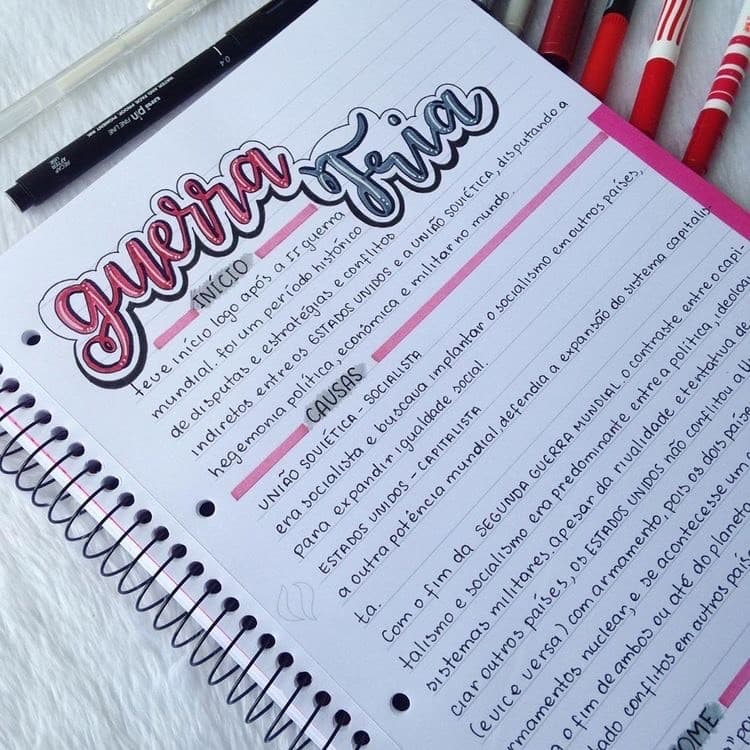 guerra Fria
INÍCIO
Teve início logo após a II guerra
mundial. foi um período histórico
de disputas e estratégias e conflitos
indiretos entre os ESTADOS UNIDOS e a UNIÃO SOVIÉTICA, disputando a
hegemonia política, econômica e militar no mundo.
CAUSAS
UNIÃO SOVIÉTICA - SOCIALISTA
era socialista e buscava implantar o socialismo em outros países,
para expandir igualdade social.
ESTADOS UNIDOS - CAPITALISTA
a outra potência mundial, defendia a expansão do sistema capitalis-
ta.
Com o fim da SEGUNDA GUERRA MUNDIAL. o contraste entre o capi-
talismo e socialismo era predominante entre a política, ideolog
sistemas militares. apesar da rivalidade e tentativa de
ciar outros países, os ESTADOS UNIDOS não conflitou a U
(e vice versa) com armamento, pois os dois país
armamentos nuclear, e se acontecesse um
o fim de ambos ou até do planeta
ado conflitos em outros país
OME
uni pin FINE LINE
0.4
WATER AND FADE PROOF PIGMENT INK